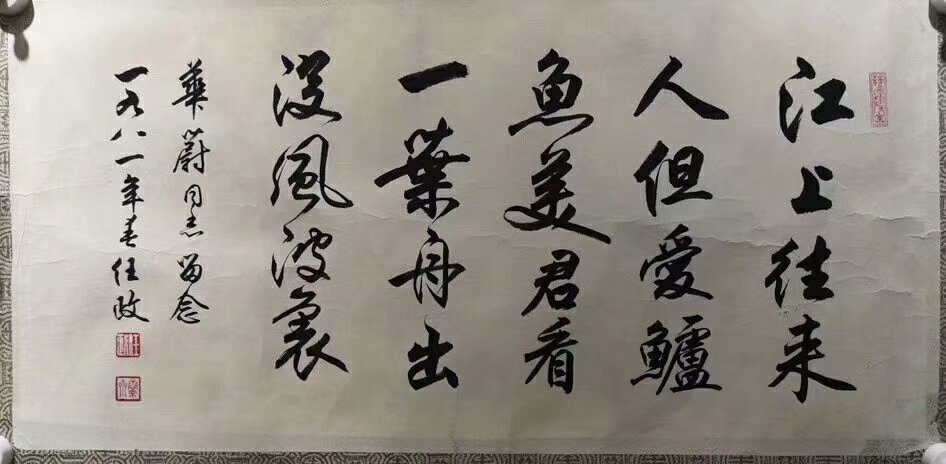 江上往来
人但愛鱸
魚美君看
一葉舟出
沒風波裏
華蔚同志留念
一九八一年春任政